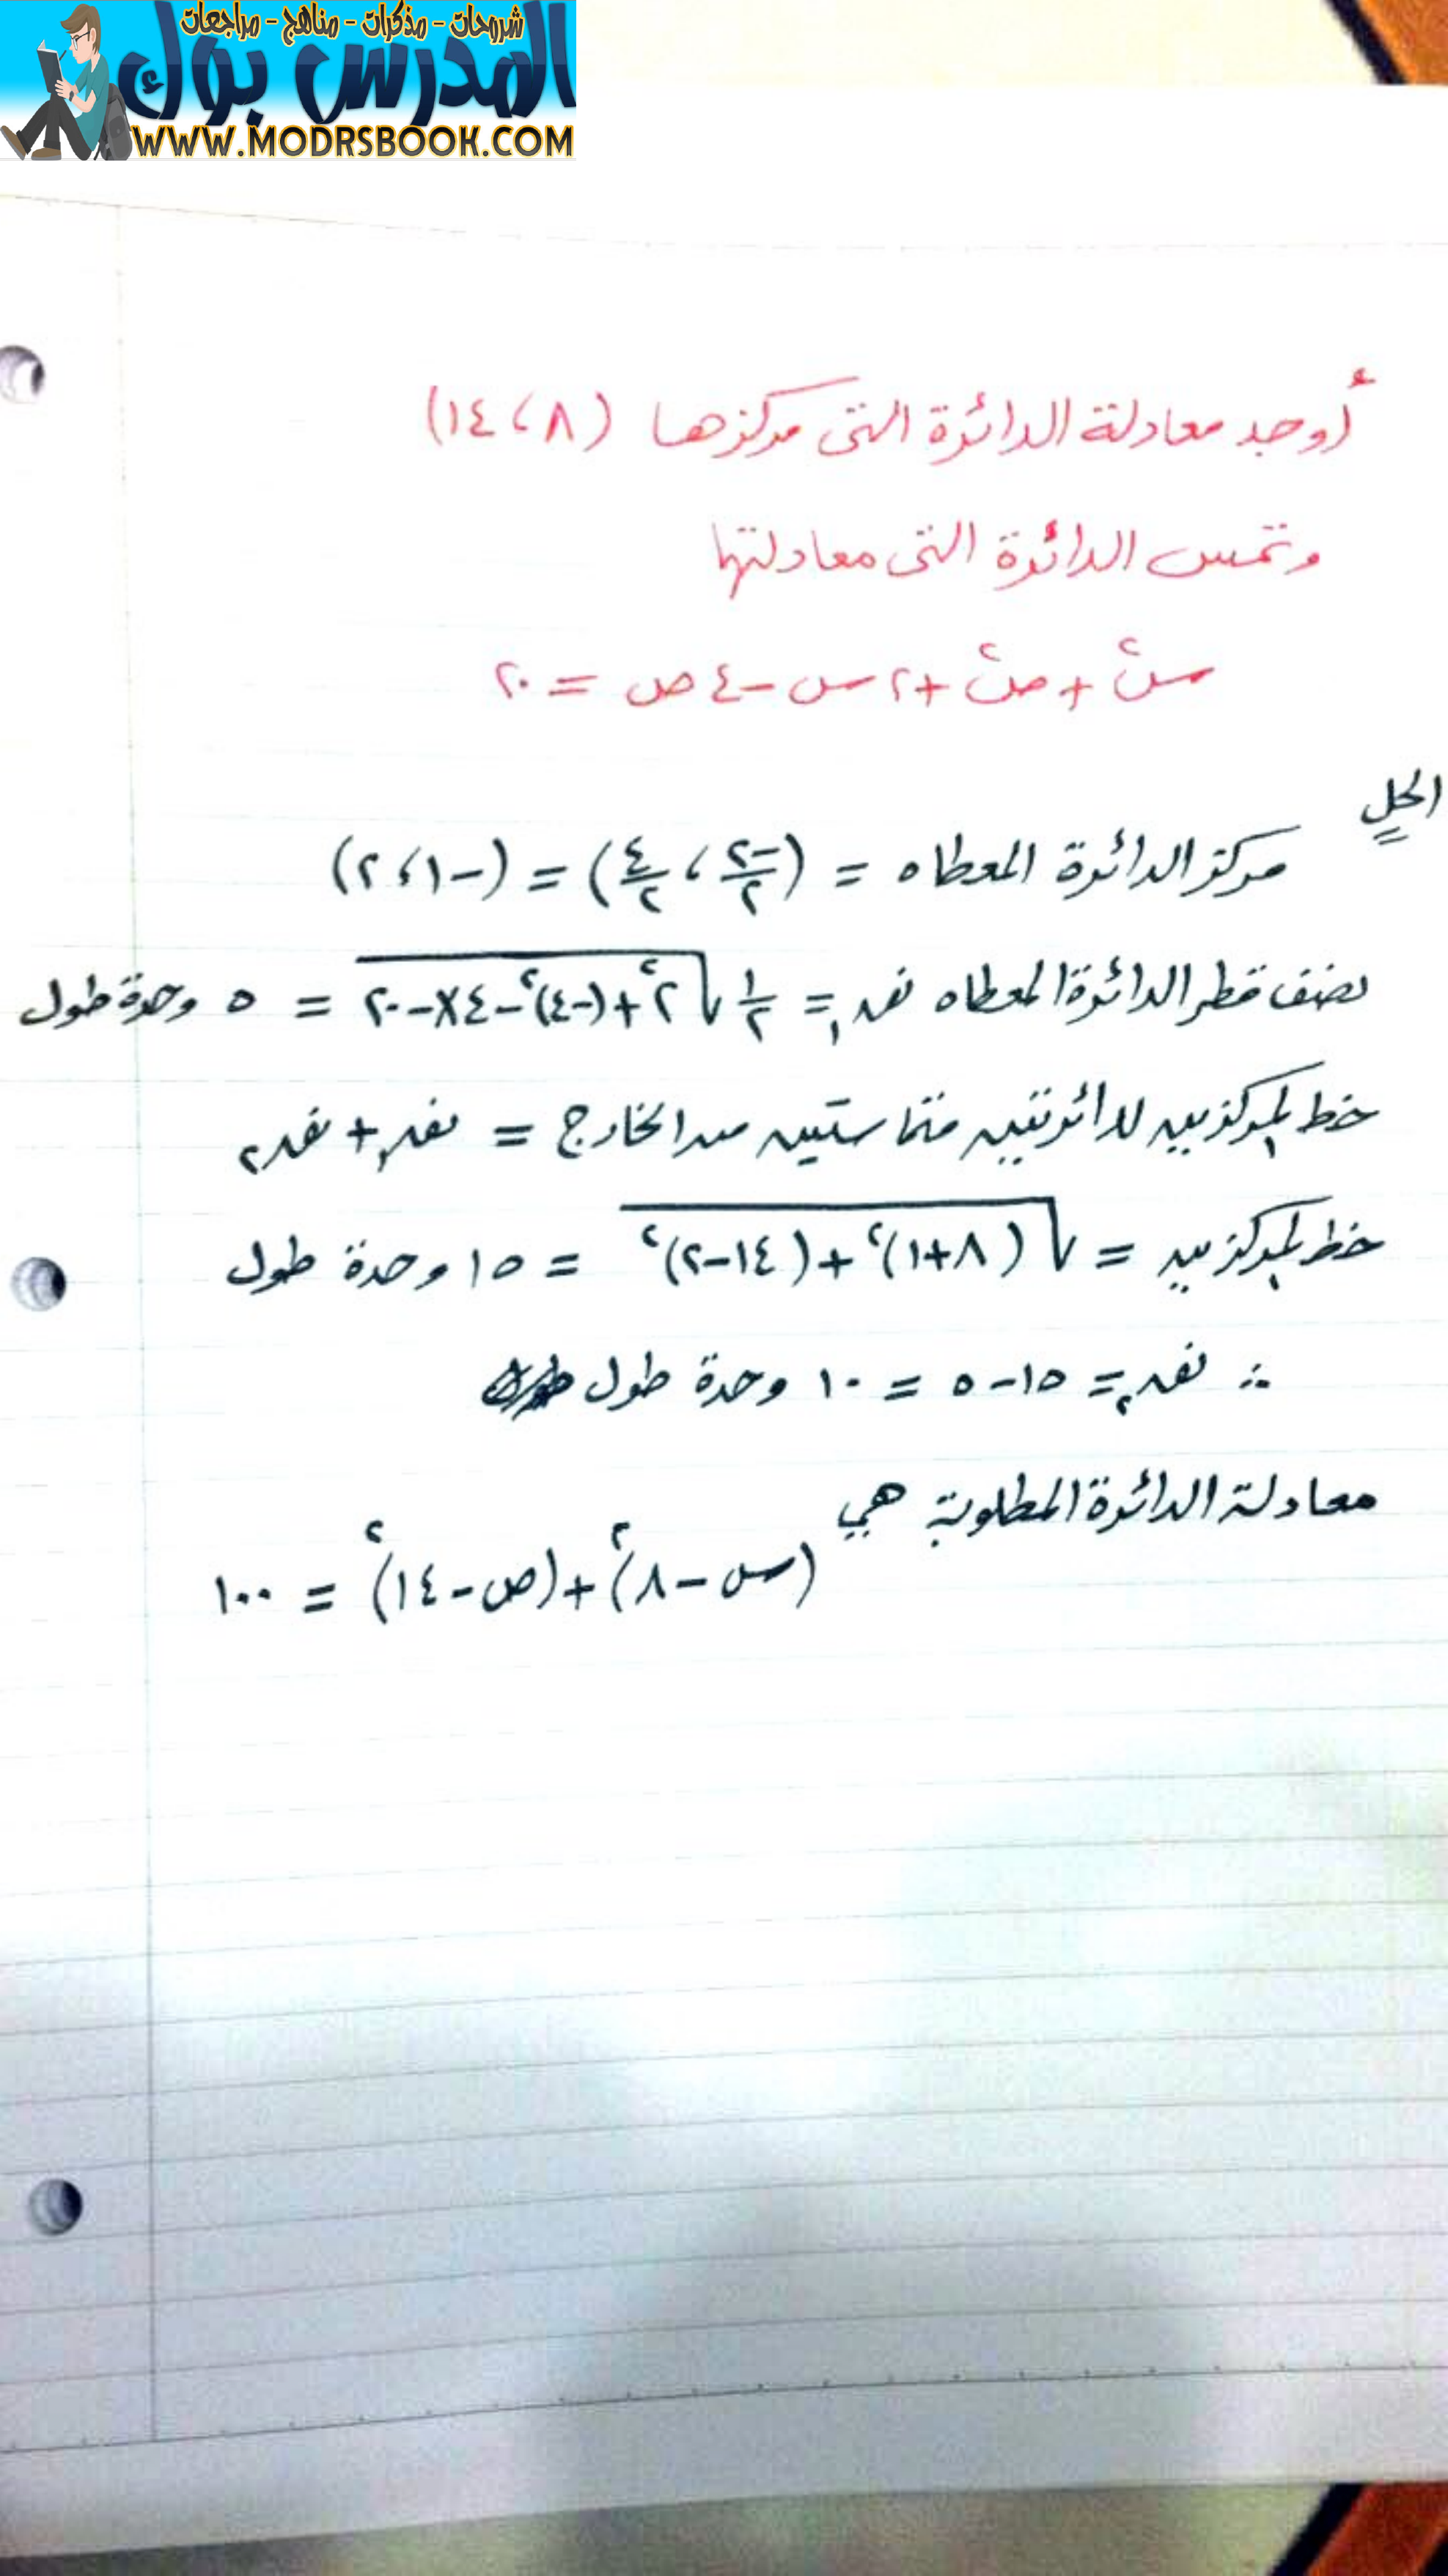 شروحات - مذكرات - مناهج - مراجعات
المدرس بوك
WWW.MODRSBOOK.COM
أوجد معادلة الدائرة التى مركزها (٨ ، ١٤)
وتمس الدائرة التى معادلتها
س٢ + ص٢ + ٢س - ٤ص = ٢٠
الحل
مركز الدائرة المعطاه = (-٢/٢ ، ٤/٢) = (-١ ، ٢)
نصف قطر الدائرة المعطاه نق١ = ١/٢ √(٢٢ + (-٤)٢ - ٤×-٢٠) = ٥ وحدة طول
خط المركزين لدائرتين متماستين من الخارج = نق١ + نق٢
خط المركزين = √((٨+١)٢ + (١٤-٢)٢) = ١٥ وحدة طول
∴ نق٢ = ١٥-٥ = ١٠ وحدة طول
معادلة الدائرة المطلوبة هي
(س-٨)٢ + (ص-١٤)٢ = ١٠٠